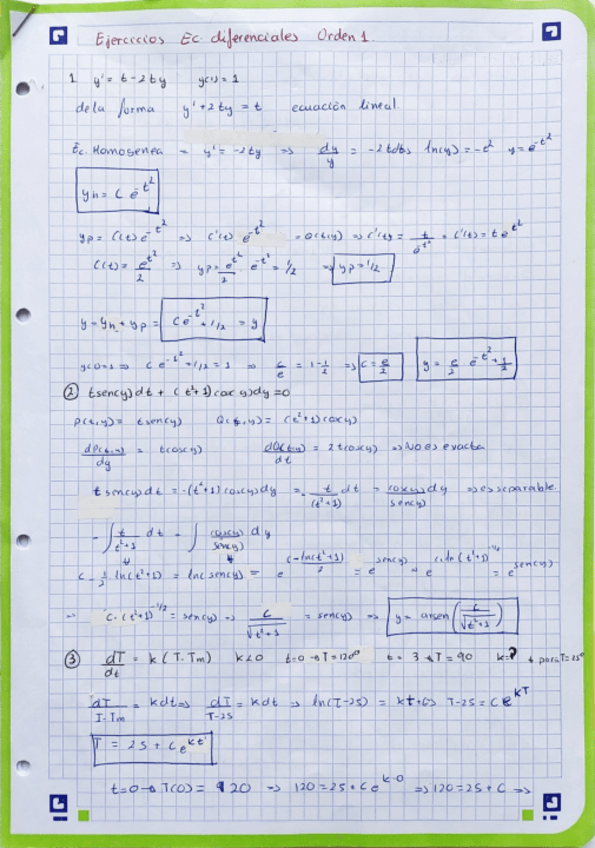 Ejercicios Ec. diferenciales Orden 1.
1 y' = t - 2ty y(1) = 1
de la forma y' + 2ty = t ecuación lineal.
Ec. Homogenea → y' = -2ty => dy/y = -2tdt => ln(y) = -t² y = e^-t²
yh = C e^-t²
yp = C(t) e^-t² => C'(t) e^-t² => C'(t) = t/e^-t² = C'(t) = t e^t²
C(t) = e^t²/2 => yp = e^t²/2 · e^-t² = 1/2 => yp = 1/2
y = yh + yp = C e^-t² + 1/2 = y
y(1) = 1 => C e^-t² + 1/2 = 1 => C/e = 1 - 1/2 => C = e/2 y = e/2 e^-t² + 1/2
② t sen(y) dt + (t²+1) cos(y) dy = 0
P(t,y) = t sen(y) Q(t,y) = (t²+1) cos(y)
dP(t,y)/dy = t cos(y) dQ(t,y)/dt = 2t cos(y) => No es exacta
t sen(y) dt = -(t²+1) cos(y) dy = - t/(t²+1) dt = cos(y)/sen(y) dy => es separable.
- ∫ t/(t²+1) dt = ∫ cos(y)/sen(y) dy
C - 1/2 ln(t²+1) = ln(sen(y)) =
=> C·(t²+1)^-1/2 = sen(y) => C/√(t²+1) = sen(y) => y = arsen(C/√(t²+1))
③ dT/dt = k(T-Tm) k<0 t=0 → T=120º t=3 → T=90 k=? t para T=25º
dT/T-Tm = kdt => dT/T-25 = kdt => ln(T-25) = kt+C => T-25 = C e^kT
T = 25 + C e^kt
t=0 → T(0) = 120 => 120 = 25 + C e^k·0 => 120 = 25 + C =>